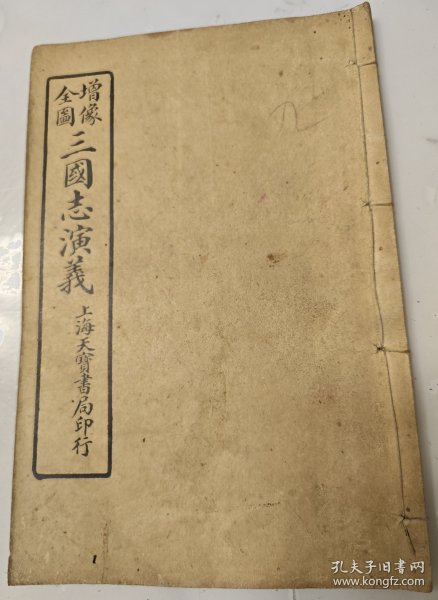 增像全圖
三國志演義
上海天寶書局印行
1
孔夫子旧书网
www.kongfz.com